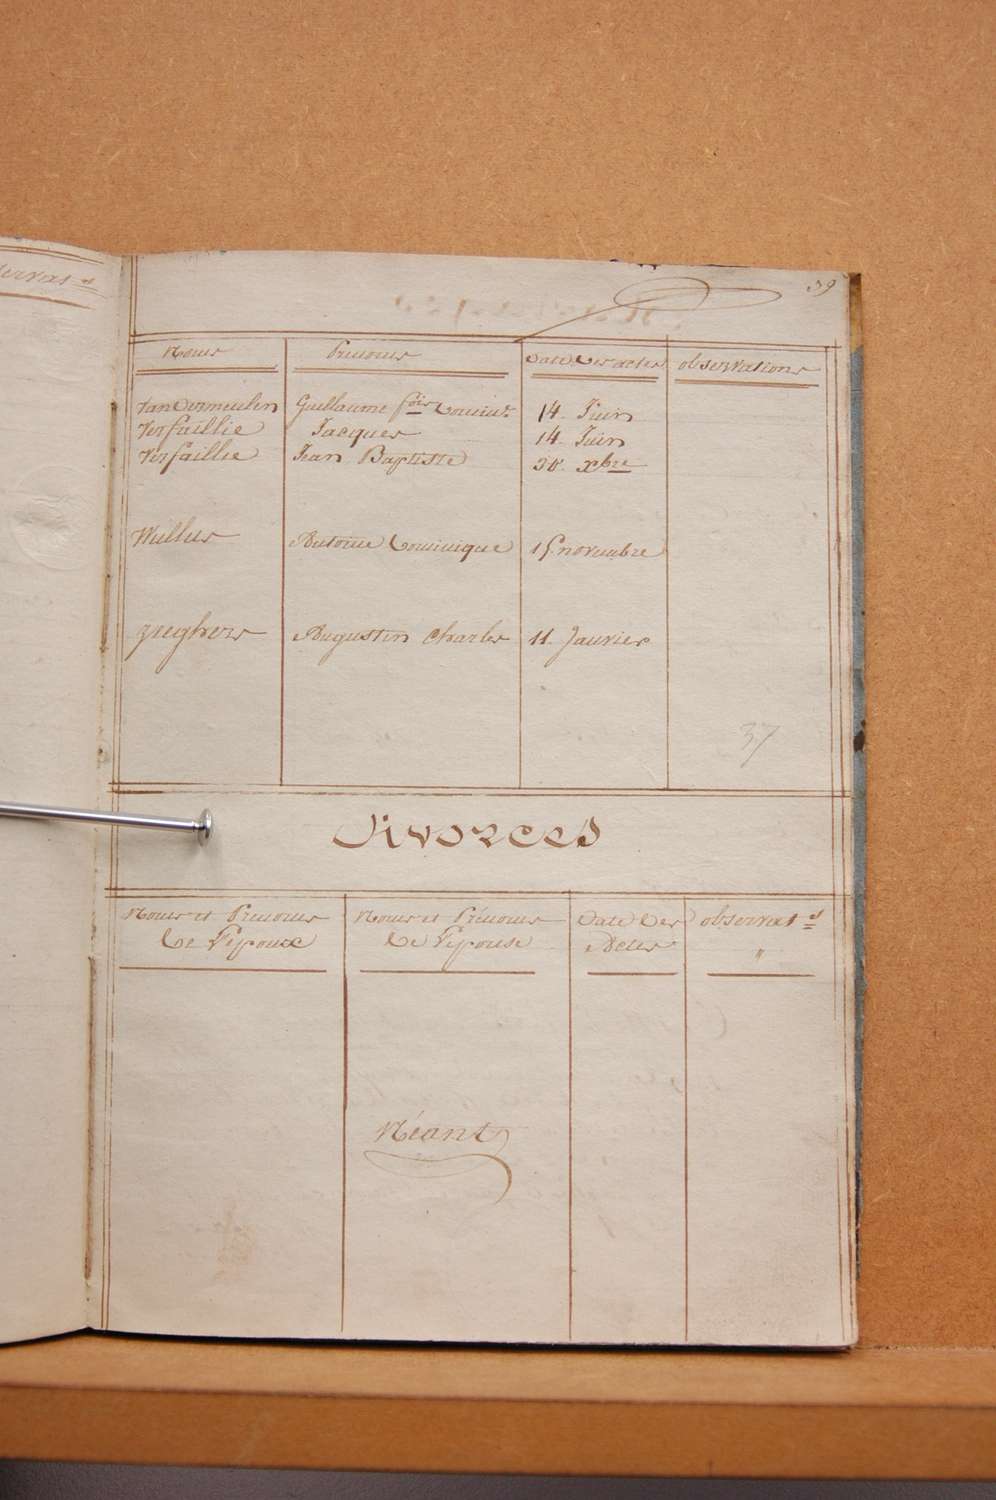 observat.s
39
Noms Prenoms Date Des actes observations
Vandermeulen Guillaume fois Dominiq. 14. Juin
Verfaillie Jacques 14. Juin
Verfaillie Jean Baptiste 30. xbre
Wullus Antoine Dominique 15 novembre
Zieghers Augustin Charles 11. Janvier
37
Divorces
Noms et Prenoms Noms et Prénoms Date Des observat.s
De l'Epoux De l'Epouse Actes "
Néant